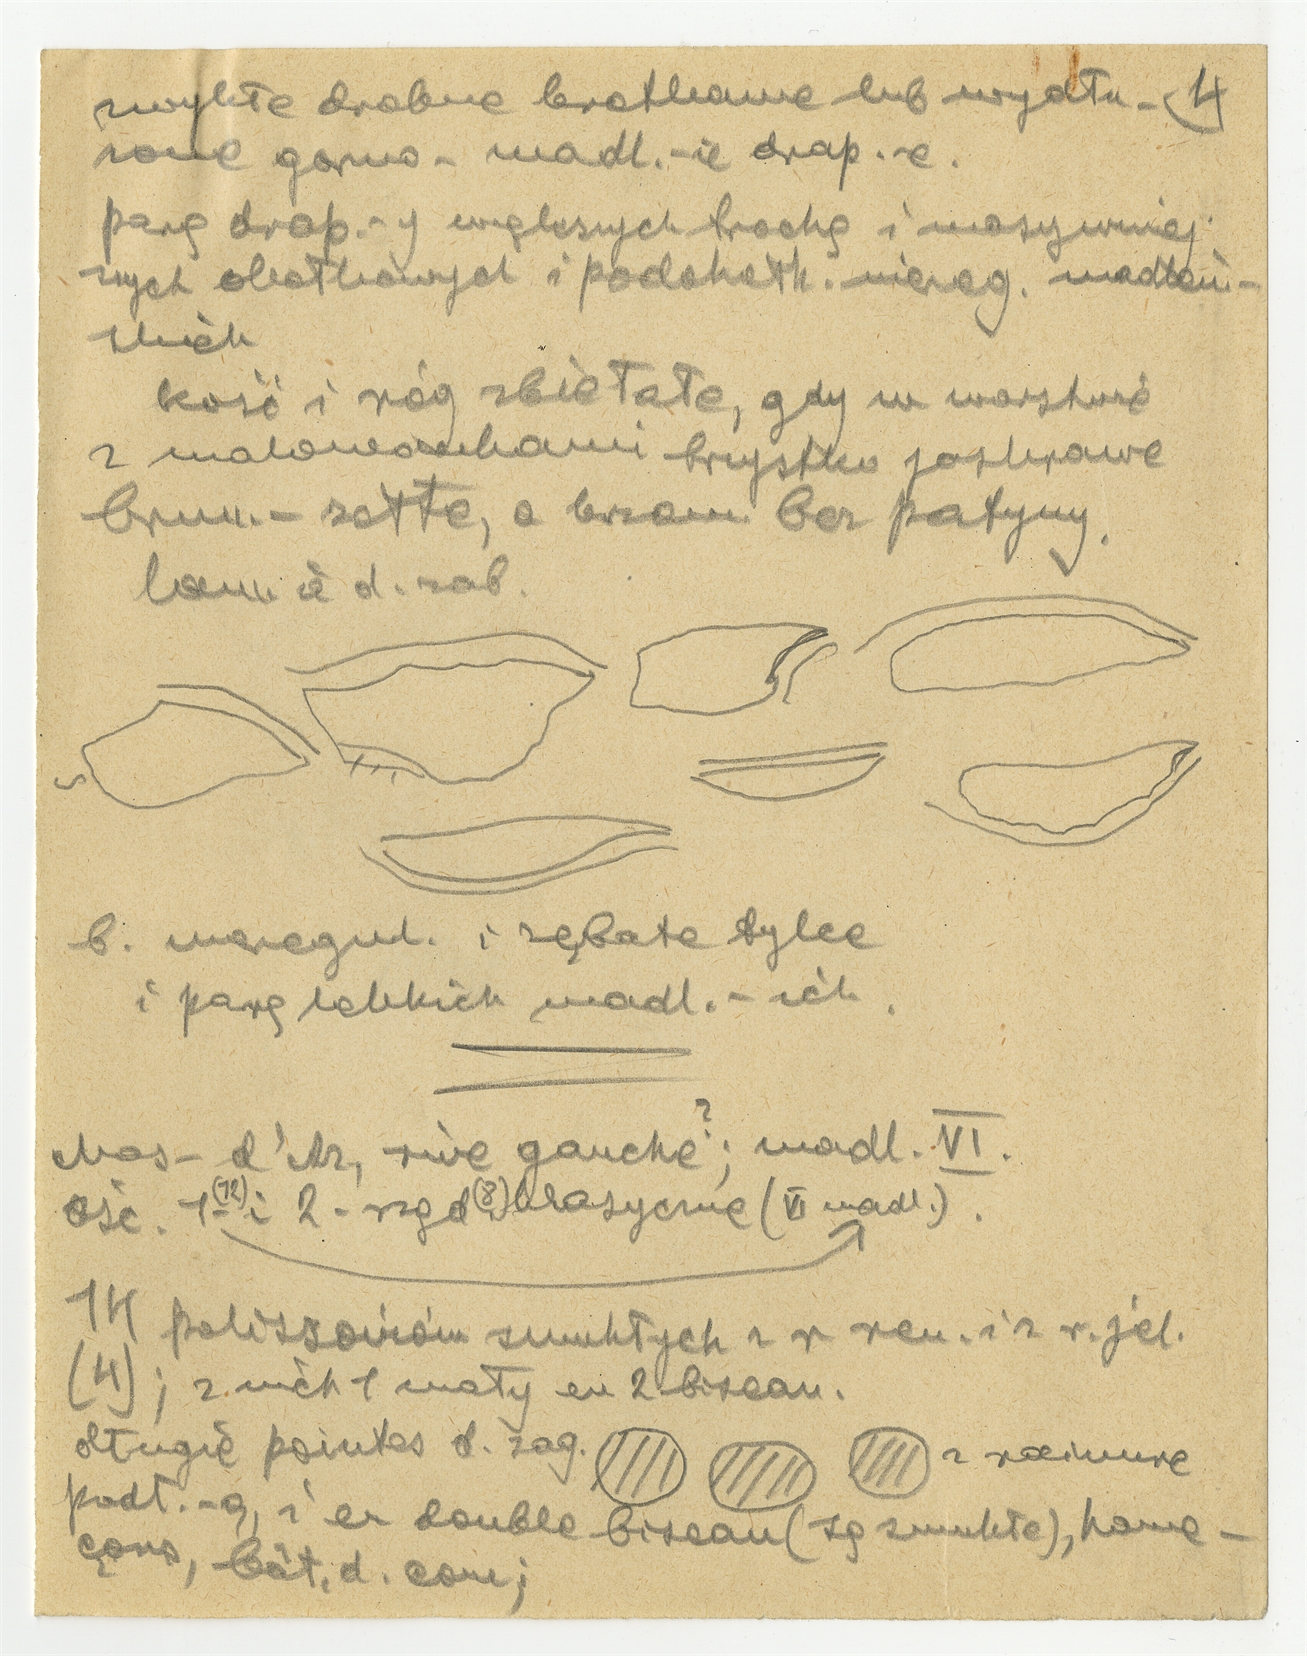 zwykłe drobne krótkawe lub wydłu- 4
żone górno- madl.-ie drap.-e.
parę drap.-y większych trochę i masywniej
szych okrótkowych i podokrtk. niereg. madleń-
skich
kość i róg zbielałe, gdy w warstwie
z malowankami brystko jaskrawe
brun.- żółte, a krzem. bez patyny.
d. zab.
b. nieregul. i zębate tylce
i parę lekkich madl.- ich.
Mas- d'Az, rive gauche?; madl. VI.
ość. 1- (12) i 2 - rzęd (8) klasyczne (VI madl.).
14 polissoirów smukłych z r ren. i z r. jel.
(4); z nich 1 mały en 2 biseau.
długie pointes d. zag. z
podł.-ą, i en double biseau (są smukłe), hame-
çons, bât. d. com;